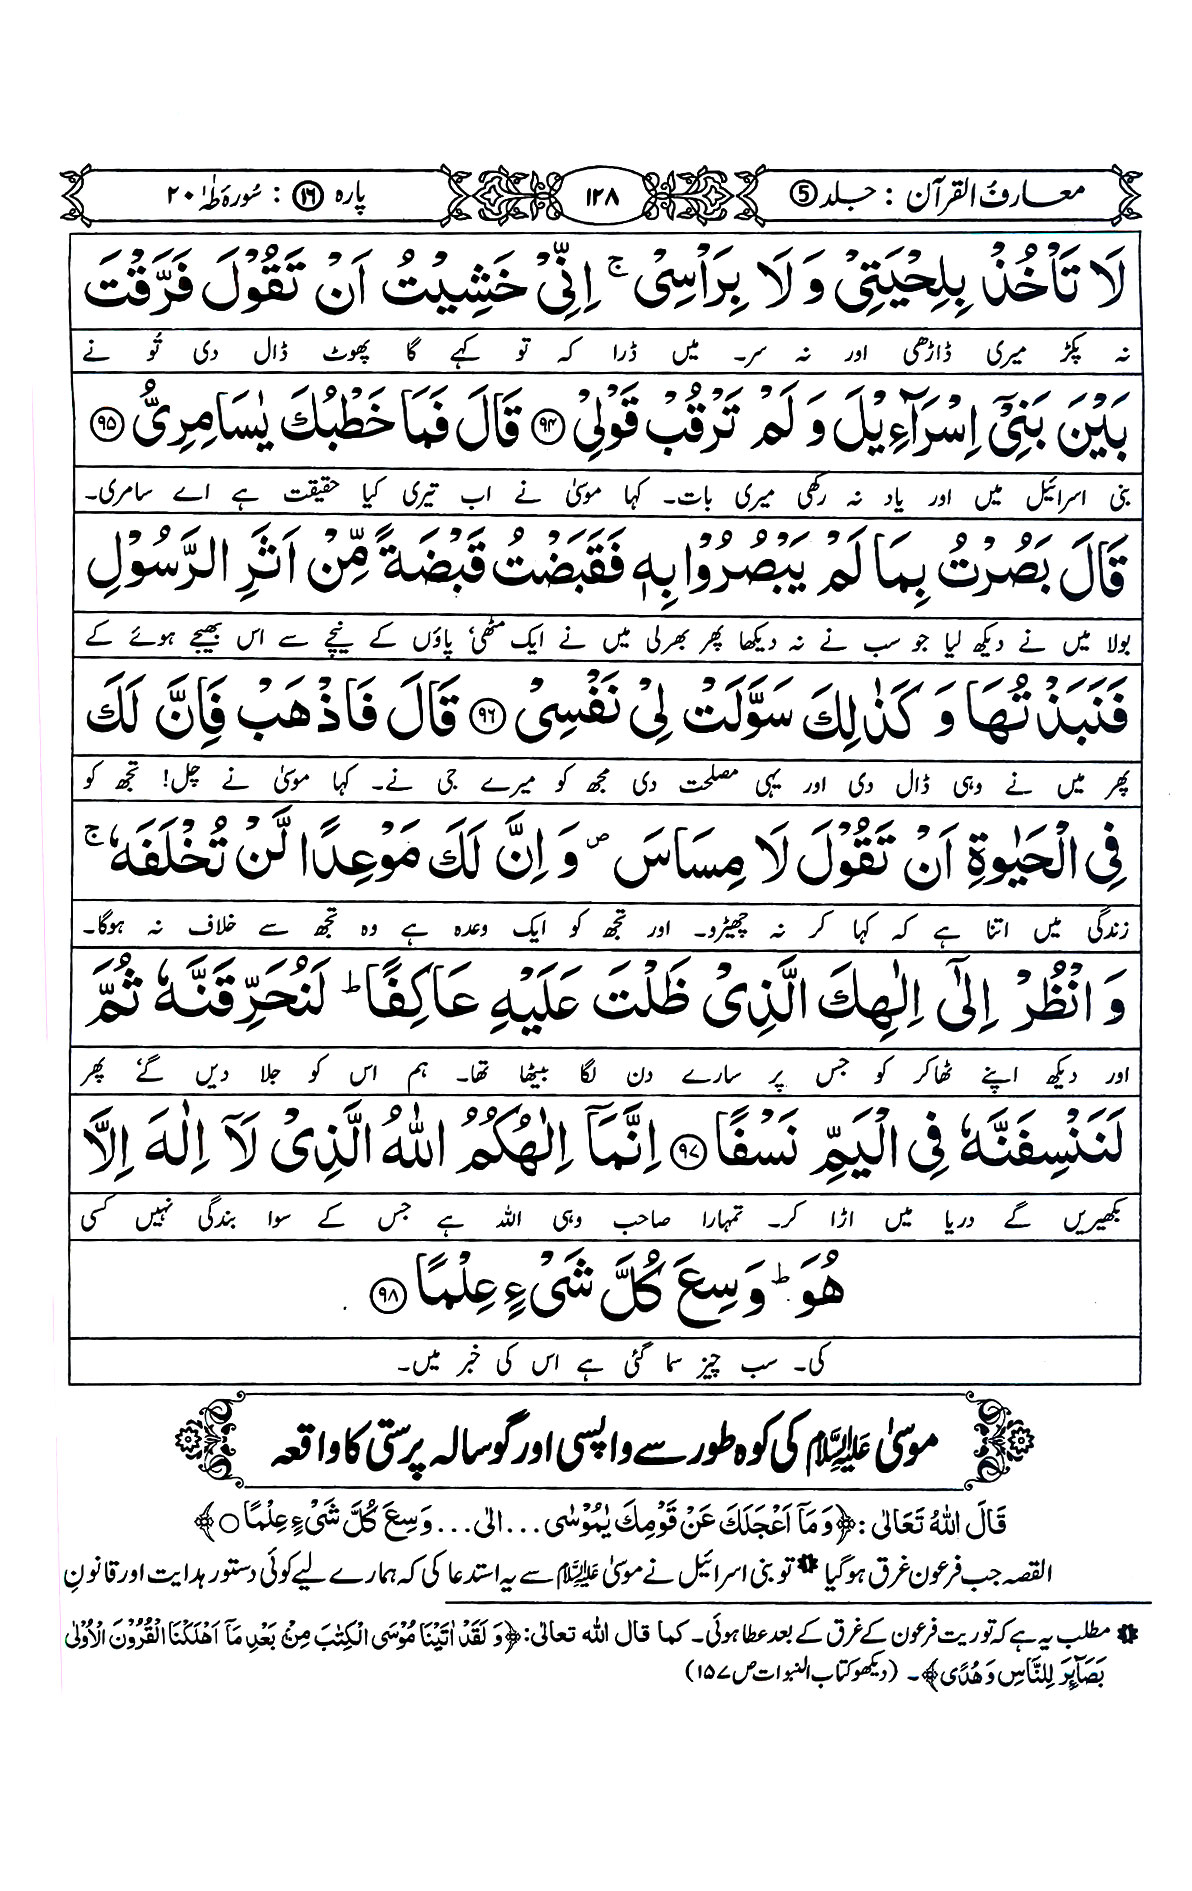 معارف القرآن : جلد 5
۱۲۸
پارہ ۱۶ : سُورَہ طٰهٰ ۲۰
لَا تَاْخُذْ بِلِحْیَتِیْ وَ لَا بِرَاْسِیْ ۚ اِنِّیْ خَشِیْتُ اَنْ تَقُوْلَ فَرَّقْتَ
نہ پکڑ میری ڈاڑھی اور نہ سر۔ میں ڈرا کہ تو کہے گا پھوٹ ڈال دی تُو نے
بَیْنَ بَنِیْۤ اِسْرَآءِیْلَ وَ لَمْ تَرْقُبْ قَوْلِیْ ۹۴ قَالَ فَمَا خَطْبُكَ یٰسَامِرِیُّ ۹۵
بنی اسرائیل میں اور یاد نہ رکھی میری بات۔ کہا موسیٰ نے اب تیری کیا حقیقت ہے اے سامری۔
قَالَ بَصُرْتُ بِمَا لَمْ یَبْصُرُوْا بِهٖ فَقَبَضْتُ قَبْضَةً مِّنْ اَثَرِ الرَّسُوْلِ
بولا میں نے دیکھ لیا جو سب نے نہ دیکھا پھر بھرلی میں نے ایک مٹھی، پاؤں کے نیچے سے اس بھیجے ہوئے کے
فَنَبَذْتُهَا وَ كَذٰلِكَ سَوَّلَتْ لِیْ نَفْسِیْ ۹۶ قَالَ فَاذْهَبْ فَاِنَّ لَكَ
پھر میں نے وہی ڈال دی اور یہی مصلحت دی مجھ کو میرے جی نے۔ کہا موسیٰ نے چل! تجھ کو
فِی الْحَیٰوةِ اَنْ تَقُوْلَ لَا مِسَاسَ ۪ وَ اِنَّ لَكَ مَوْعِدًا لَّنْ تُخْلَفَهٗ ۚ
زندگی میں اتنا ہے کہ کہا کر نہ چھیڑو۔ اور تجھ کو ایک وعدہ ہے وہ تجھ سے خلاف نہ ہوگا۔
وَ انْظُرْ اِلٰۤی اِلٰهِكَ الَّذِیْ ظَلْتَ عَلَیْهِ عَاكِفًا ؕ لَنُحَرِّقَنَّهٗ ثُمَّ
اور دیکھ اپنے ٹھاکر کو جس پر سارے دن لگا بیٹھا تھا۔ ہم اس کو جلا دیں گے، پھر
لَنَنْسِفَنَّهٗ فِی الْیَمِّ نَسْفًا ۹۷ اِنَّمَاۤ اِلٰهُكُمُ اللّٰهُ الَّذِیْ لَاۤ اِلٰهَ اِلَّا
بکھیریں گے دریا میں اڑا کر۔ تمہارا صاحب وہی اللہ ہے جس کے سوا بندگی نہیں کسی
هُوَ ؕ وَسِعَ كُلَّ شَیْءٍ عِلْمًا ۹۸
کی۔ سب چیز سما گئی ہے اس کی خبر میں۔
موسیٰ علیہ السلام کی کوہ طور سے واپسی اور گوسالہ پرستی کا واقعہ
قَالَ اللّٰهُ تَعَالٰی : ﴿وَ مَاۤ اَعْجَلَكَ عَنْ قَوْمِكَ یٰمُوْسٰی ... الی ... وَسِعَ كُلَّ شَیْءٍ عِلْمًا ○﴾
القصہ جب فرعون غرق ہوگیا ۱ تو بنی اسرائیل نے موسیٰ علیہ السلام سے یہ استدعا کی کہ ہمارے لیے کوئی دستور ہدایت اور قانونِ
۱ مطلب یہ ہے کہ توریت فرعون کے غرق کے بعد عطا ہوئی۔ کما قال اللہ تعالیٰ: ﴿وَ لَقَدْ اٰتَیْنَا مُوْسَی الْكِتٰبَ مِنْۢ بَعْدِ مَاۤ اَهْلَكْنَا الْقُرُوْنَ الْاُوْلٰی
بَصَآىِٕرَ لِلنَّاسِ وَ هُدًی﴾۔ (دیکھو کتاب النبوات ص ۱۵۷)